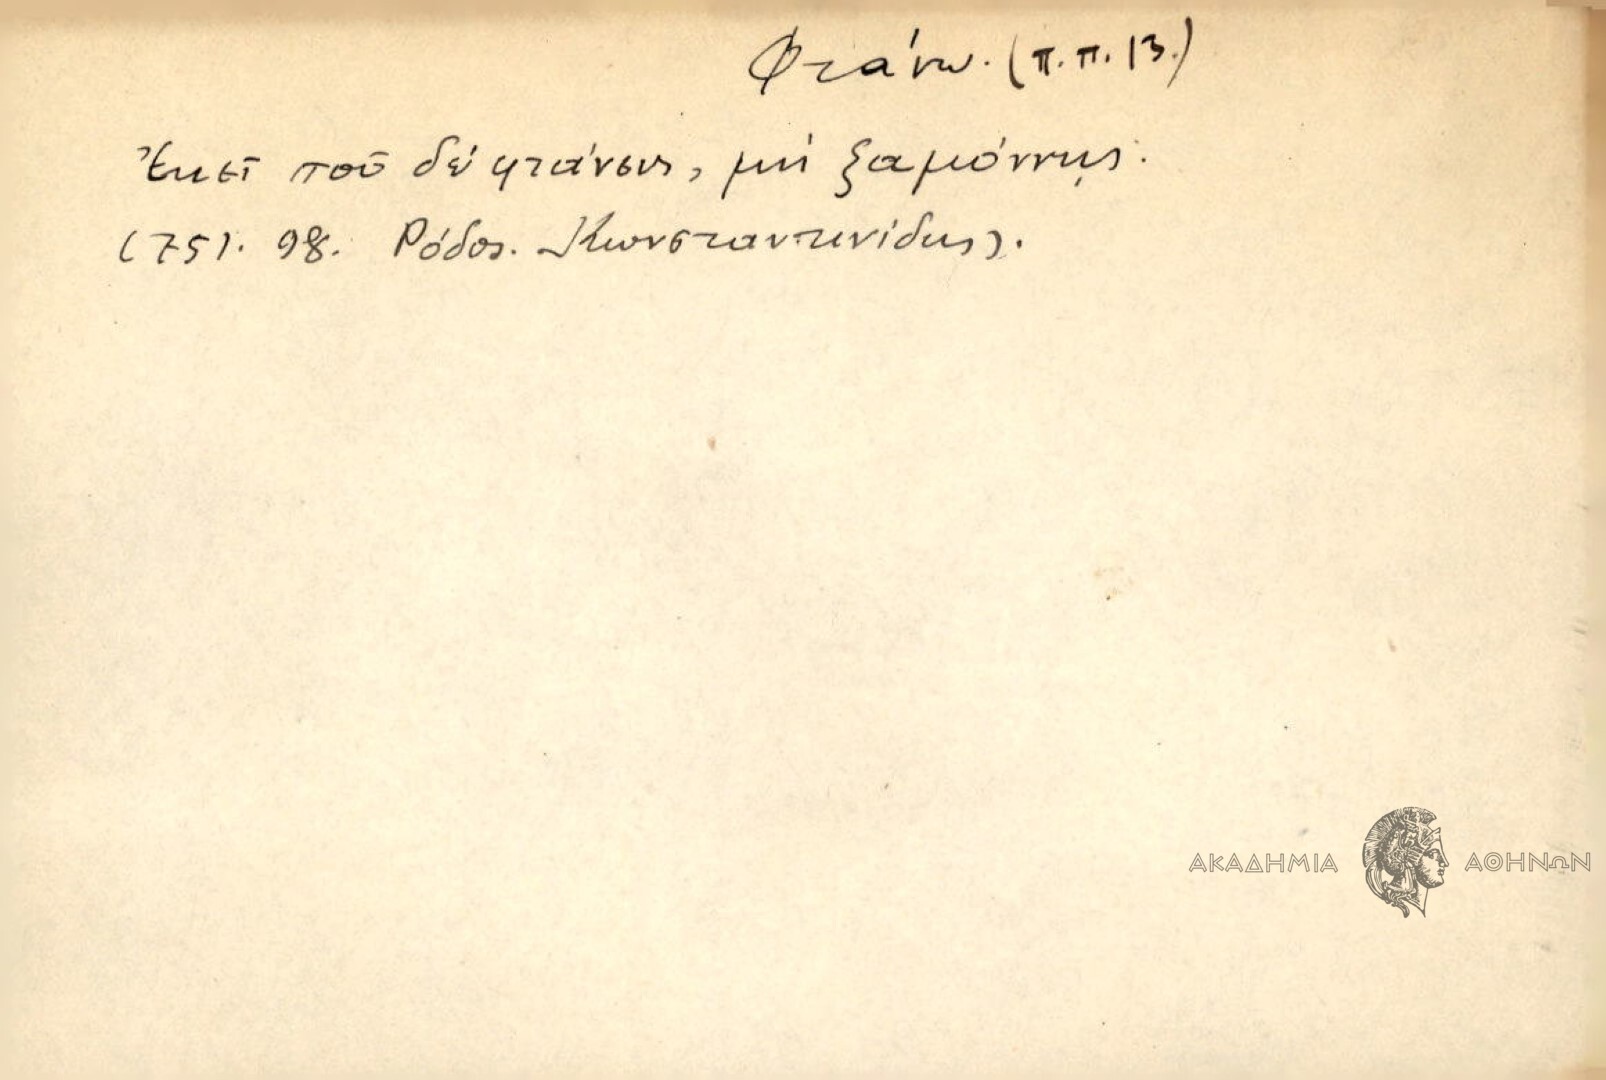 Φτάνω. (π.π. 13.)
Ἐκεῖ ποῦ δέ φτάνεις, μή ξαμώννῃς.
(751. 98. Ρόδος. Κωνσταντινίδης).
ΑΚΑΔΗΜΙΑ ΑΘΗΝΩΝ